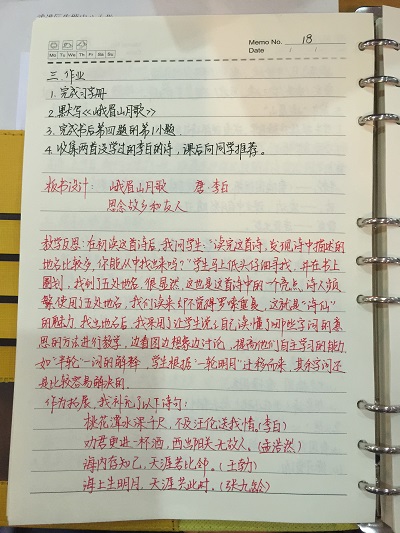 Memo No. 18
Mo Tu We Th Fr Sa Su
Date / /
三、作业
1. 完成习字册
2. 默写《峨眉山月歌》
3. 完成书后第四题的第1小题
4. 收集两首没学过的李白的诗，课后向同学推荐。
板书设计： 峨眉山月歌 唐·李白
思念故乡和友人
教学反思：在初读这首诗后，我问学生：“读完这首诗，发现诗中描述的
地名比较多，你能从中找出来吗？”学生马上低头仔细寻找，并在书上
圈划，找到了五处地名，很显然，这也是这首诗中的一个亮点，诗人频
繁使用五处地名，我们读来却不觉得罗嗦重复，这就是“诗仙”
的魅力。找出地名后，我采用了让学生说说自己读懂了哪些字词的意
思的方法进行教学，边看图边想象边讨论，提高他们自主学习的能力
如“半轮”一词的解释，学生根据“一轮明月”迁移而来，其余字词还
是比较容易解决的。
作为拓展，我补充了以下诗句：
桃花潭水深千尺，不及汪伦送我情。(李白)
劝君更进一杯酒，西出阳关无故人。(孟浩然)
海内存知己，天涯若比邻。(王勃)
海上生明月，天涯共此时。(张九龄)